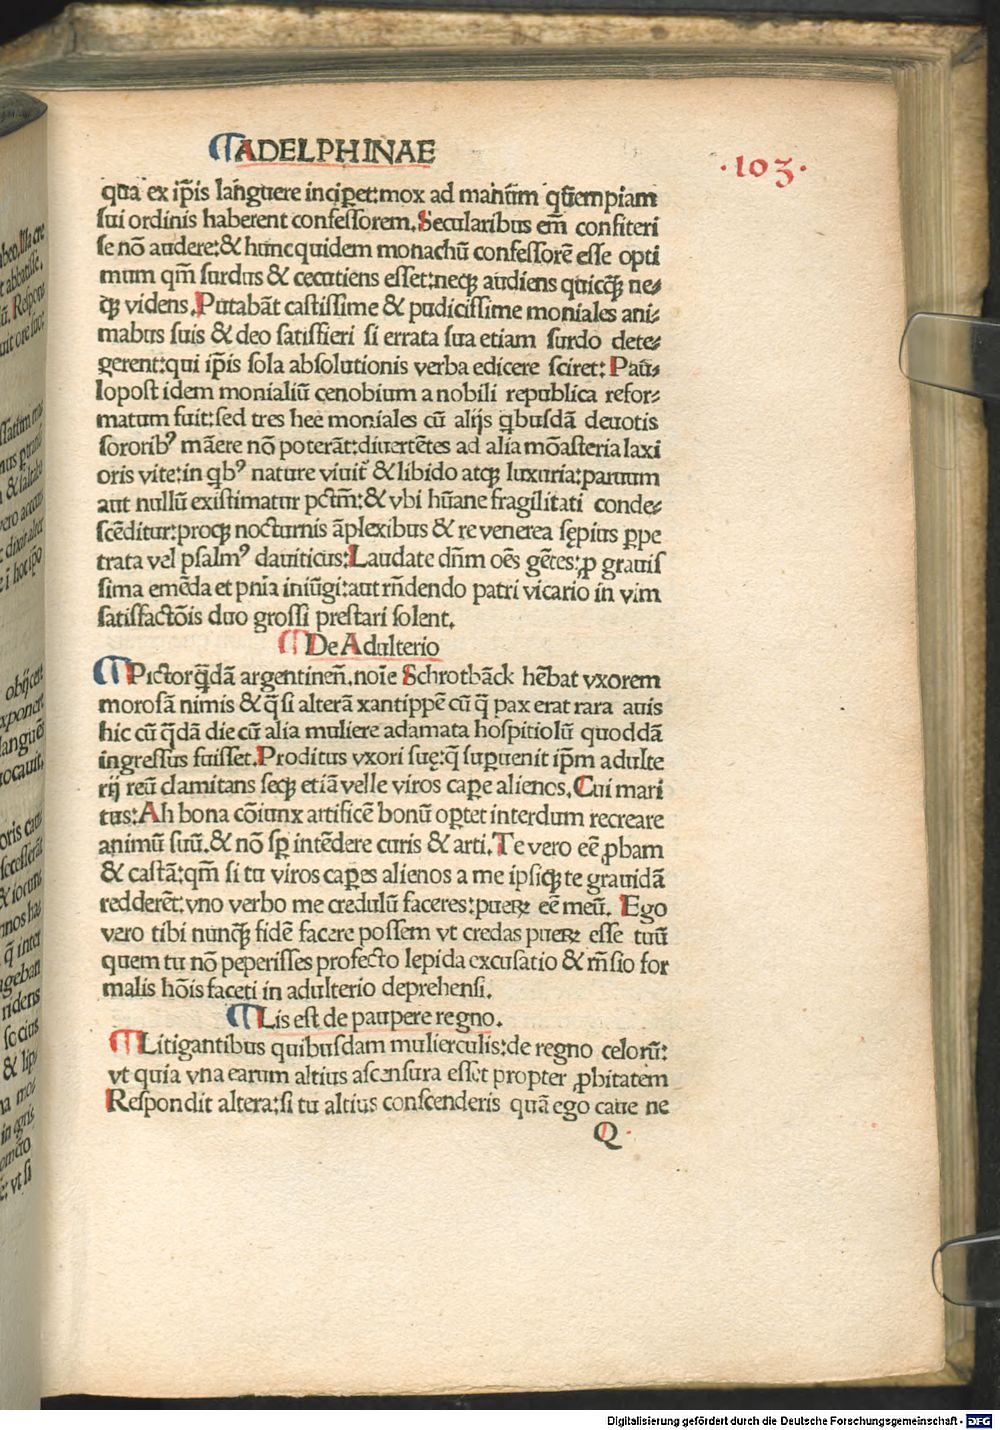 ADELPHINAE
·103·
qua ex ip̄is languere inciꝑet:mox ad manū quēmpiam
sui ordinis haberent confessorem.Secularibus em̄ confiteri
se nō audere:& hunc quidem monachū confessorē esse opti
mum qm̄ surdus & cecutiens esset:neqꝫ audiens quicqꝫ ne⸗
qꝫ videns.Putabāt castissime & pudicissime moniales ani⸗
mabus suis & deo satisfieri si errata sua etiam surdo dete⸗
gerent:qui ip̄is sola absolutionis verba edicere sciret: Pau⸗
lopost idem monialiū cenobium a nobili republica refor⸗
matum fuit:sed tres hee moniales cū alijs qbusdā deuotis
sororibꝰ māere nō poterāt:diuertētes ad alia mōasteria laxi
oris vite:in qbꝰ nature viuit̄ & libido atqꝫ luxuria:paruum
aut nullū existimatur pctm̄:& vbi hūane fragilitati conde⸗
scēditur:proqꝫ nocturnis āplexibus & re venerea sępius ꝑpe
trata vel psalmꝰ dauiticus:Laudate dn̄m oēs gētes:ꝓ grauis
sima emēda et pnīa iniūgi:aut rn̄dendo patri vicario in vim
satisfactōis duo grossi prestari solent.
De Adulterio
Pictor q̄dā argentinen̄.noīe Schrotbāck hēbat vxorem
morosā nimis & q̄si alterā xantippē cū q̄ pax erat rara auis
hic cū q̄dā die cū alia muliere adamata hospitiolū quoddā
ingressus fuisset.Proditus vxori suę:q̄ superuenit ip̄m adulte
rij reū clamitans seqꝫ etiā velle viros caꝑe alienos.Cui mari
tus:Ah bona cōiunx artificē bonū oꝑtet interdum recreare
animū suū.& nō sꝑ intēdere curis & arti.Te vero eē ꝓbam
& castā:qm̄ si tu viros caꝑes alienos a me ipsiqꝫ te grauidā
redderēt:vno verbo me credulū faceres:pueꝝ eē meū. Ego
vero tibi nunqꝫ fidē facere possem vt credas pueꝝ esse tuū
quem tu nō peperisses profecto lepida excusatio & m̄sio for
malis hōis faceti in adulterio deprehensi.
Lis est de paupere regno.
Litigantibus quibusdam mulierculis:de regno celorū:
vt quia vna earum altius ascensura esset propter ꝓbitatem
Respondit altera:si tu altius conscenderis quā ego caue ne
Q
Digitalisierung gefördert durch die Deutsche Forschungsgemeinschaft - DFG